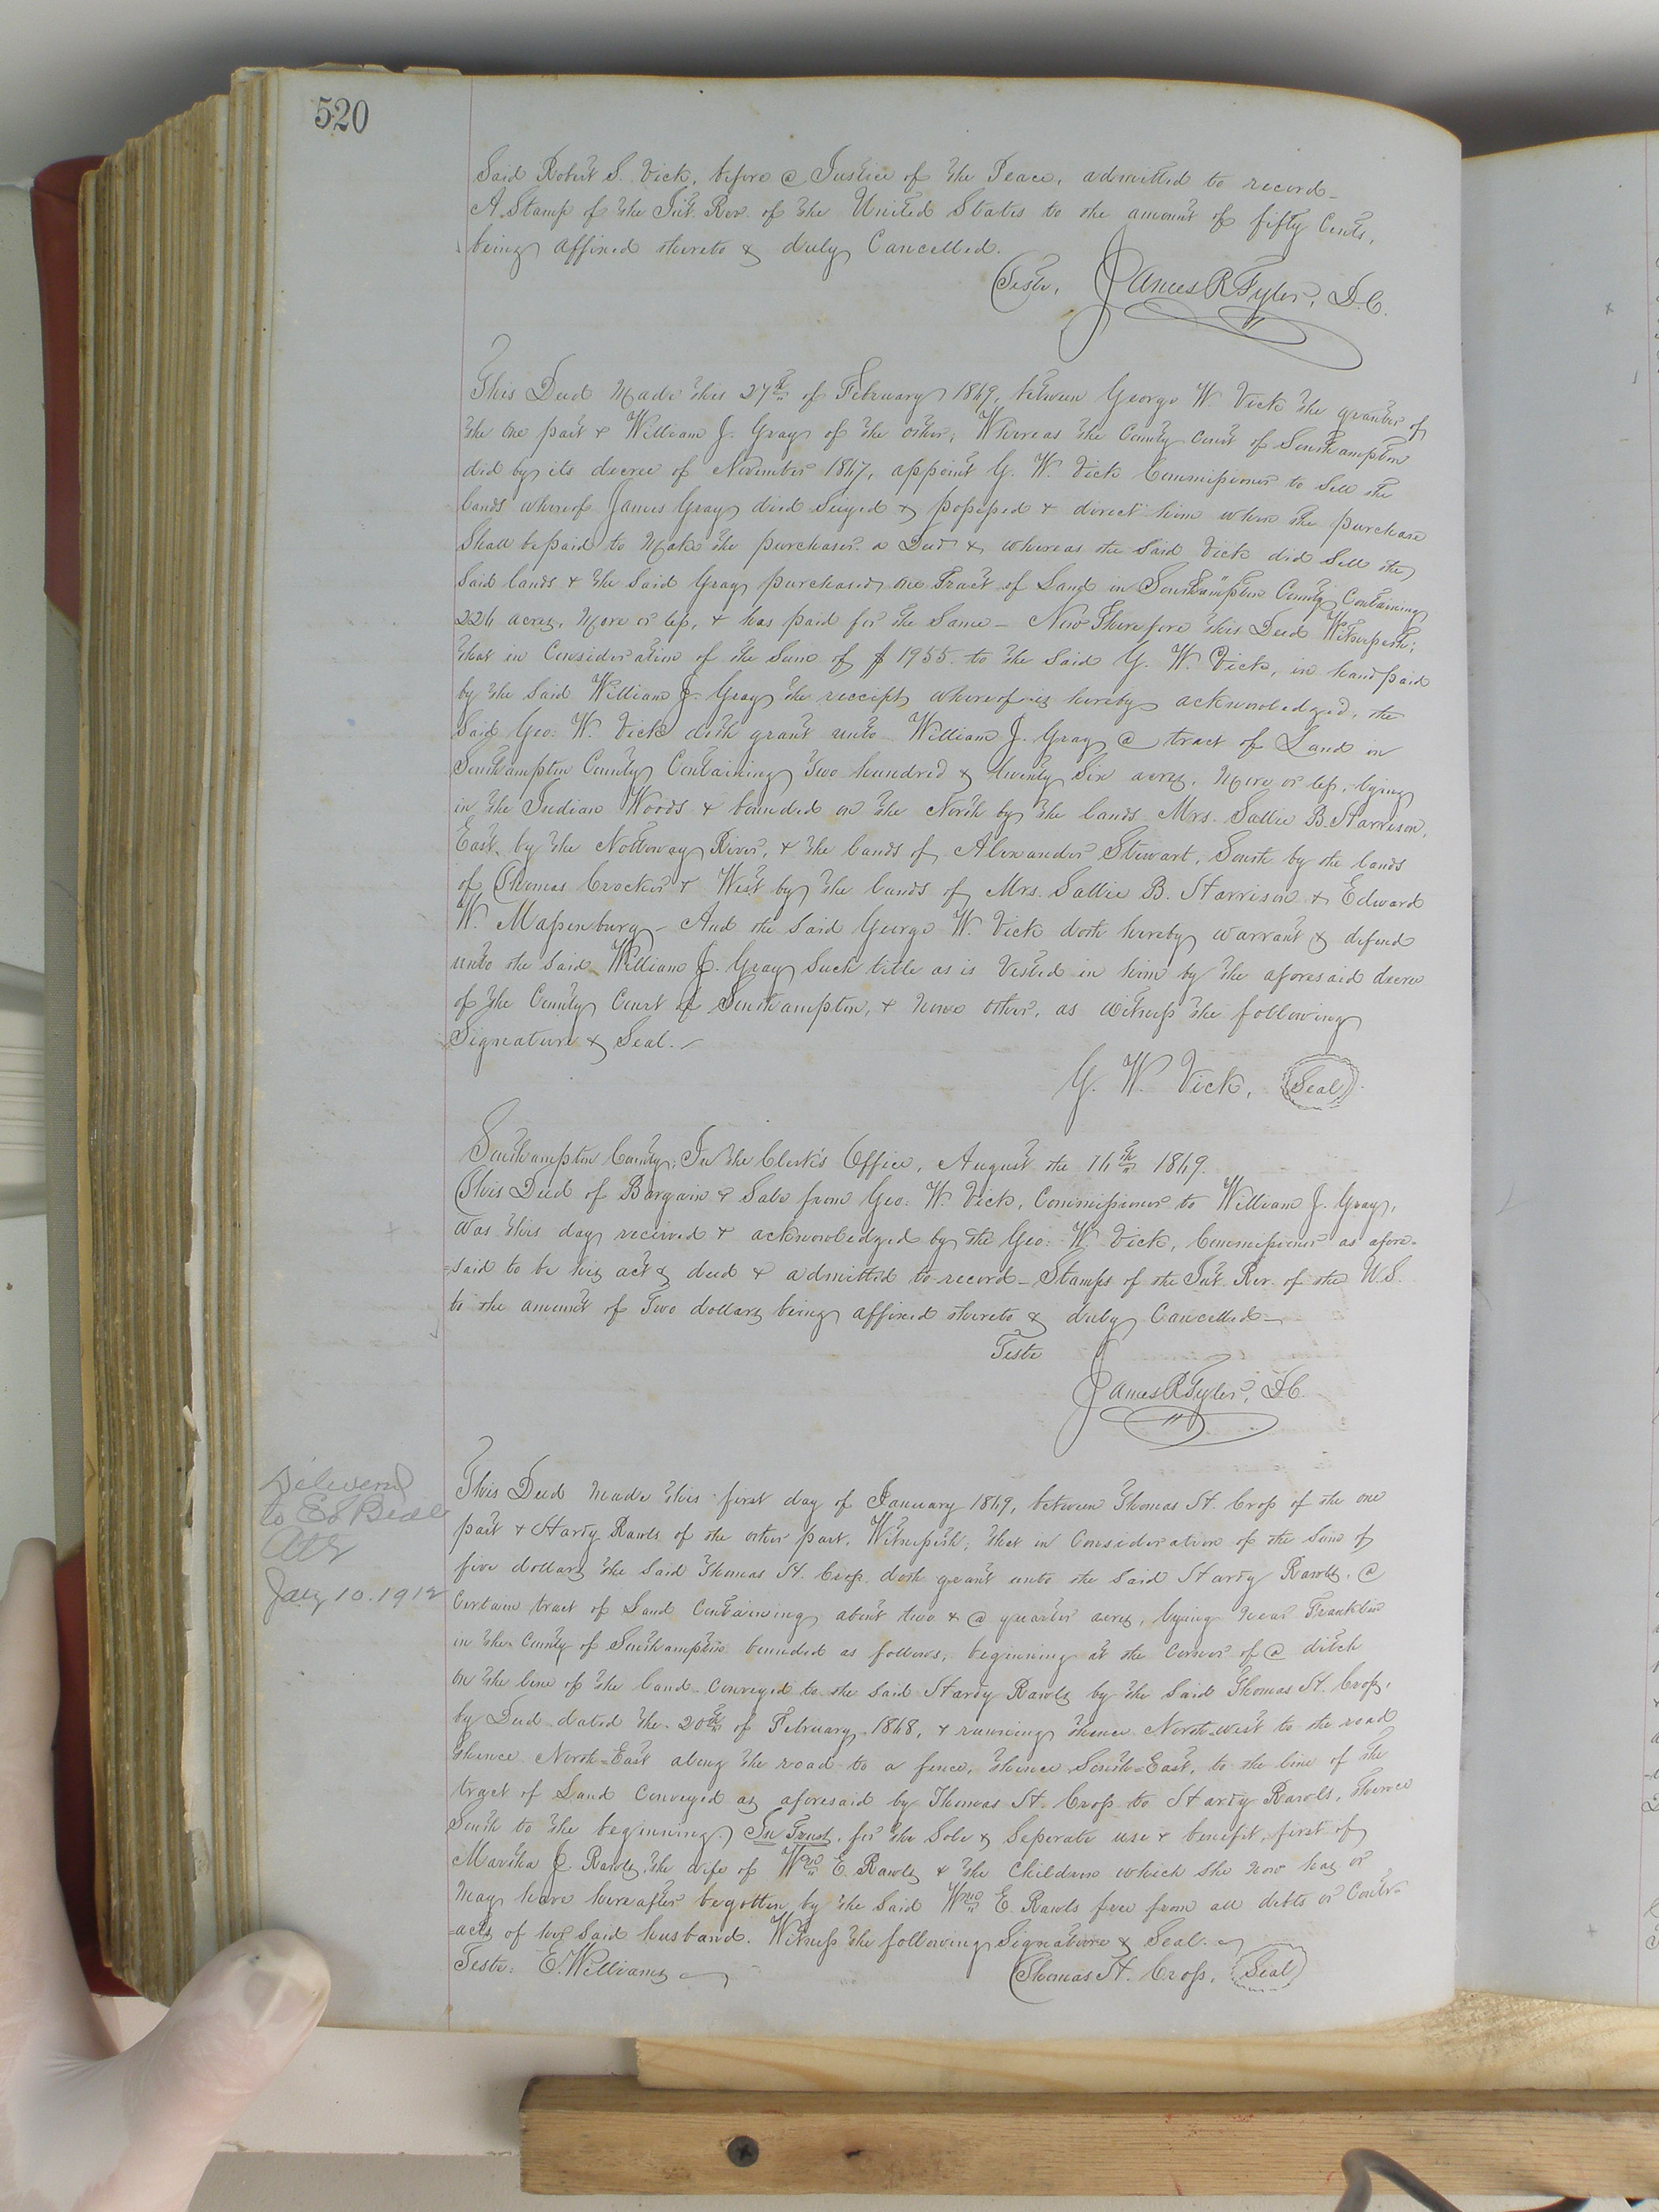 520
Said Robert S. Vick, before a Justice of the Peace, admitted to record_
A Stamp of the Int. Rev. of the United States to the amount of fifty Cents,
being affixed thereto & duly Cancelled.
Teste, James R Tyler, D.C.
This Deed Made this 27th of February 1869, between George W. Vick the grantor of
the one part & William J. Gray of the other, Whereas the County Court of Southampton
did by its decree of November 1867, appoint G. W. Vick Commissioner to Sell the
lands whereof James Gray died Seized & possessed & direct him when the purchase
Shall be paid to Make the purchaser a Deed & whereas the Said Vick did Sell the
Said lands & the Said Gray purchased one Tract of Land in Southampton County Containing
226 acres, More or less, & has paid for the Same – Now Therefore this Deed Witnesseth;
that in Consideration of the Sum of $1955. to the Said G. W. Vick, in hand paid
by the Said William J. Gray the receipt whereof is hereby acknowledged, the
Said Geo: W. Vick doth grant unto William J. Gray a tract of Land in
Southampton County Containing Two hundred & twenty Six acres, More or less, lying
in the Indian Woods & bounded on the North by the lands Mrs. Sallie B. Harrison,
East, by the Nottoway River, & the lands of Alexander Stewart, South by the lands
of Thomas Crocker & West by the lands of Mrs. Sallie B. Harrison & Edward
W. Massenburg – And the Said George W. Vick doth hereby warrant & defend
unto the Said William J. Gray Such title as is Vested in him by the aforesaid decree
of the County Court of Southampton, & none other, as witness the following
Signature & Seal. –
G. W. Vick, Seal
Southampton County; In the Clerk's Office, August the 16th 1869.
This Deed of Bargain & Sale from Geo: W. Vick, Commissioner to William J. Gray,
was this day received & acknowledged by the Geo: W. Vick, Commissioner as afore-
=said to be his act & deed & admitted to record – Stamps of the Int. Rev. of the U.S.
to the amount of Two dollars being affixed thereto & duly Cancelled –
Teste
James R Tyler, D.C.
This Deed Made this first day of January 1869, between Thomas H. Cross of the one
part & Hardy Rawls of the other part, Witnesseth; that in Consideration of the Sum of
five dollars the Said Thomas H. Cross doth grant unto the Said Hardy Rawls, a
Certain tract of Land Containing about two & a quarter acres, lying near Franklin
in the County of Southampton bounded as follows, beginning at the Corner of a ditch
on the line of the land Conveyed to the Said Hardy Rawls by the Said Thomas H. Cross,
by Deed dated the 20th of February 1868, & running thence North-west to the road
thence North-East along the road to a fence, thence South-East, to the line of the
tract of Land Conveyed as aforesaid by Thomas H. Cross to Hardy Rawls, thence
South to the beginning. In Trust, for the Sole & Seperate use & benefit, first of
Martha J. Rawls, the wife of Wm E. Rawls & the Children which She now has or
May have hereafter begotten by the Said Wm E. Rawls free from all debts or Contr-
=acts of her Said husband. Witness the following Signature & Seal.
Teste: E. Williams Thomas H. Cross, Seal
Delivered
to Beale
Atty
Jany 10. 1912